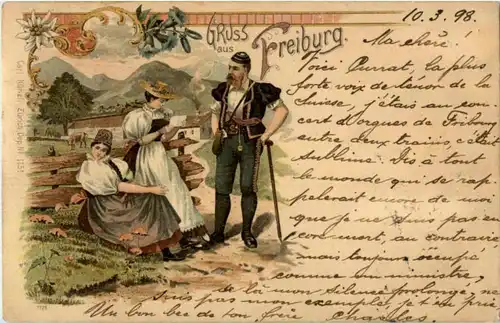 Gruss
aus
Freiburg.
10.3.98.
Ma chère!
Voici Currat, la plus
forte voix de ténor de la
Suisse, j'étais au con
cert d'orgues de Fribourg
entre deux trains, c'était
sublime. Dis à tout
le monde qui se rap
pelerait encore de moi
que je ne suis pas en
core mort, au contraire
mais toujours occupé
comme un ministre,
de là mon silence prolongé, ne
suis pas mon exemple, je t'en prie
Un bon bec de ton frère Charles